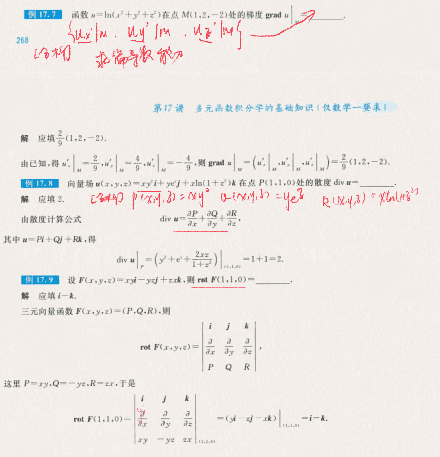 例 17.7 函数 u=ln(x²+y²+z²)在点 M(1,2,-2)处的梯度 grad u|_M=______.
268
{u'x|M , u'y|M , u'z|M}
[分析] 求偏导数
第 17 讲 多元函数积分学的基础知识(仅数学一要求)
解 应填 2/9 (1,2,-2).
由已知,得 u'_x|_M=2/9, u'_y|_M=4/9, u'_z|_M=-4/9,则 grad u|_M=(u'_x|_M,u'_y|_M,u'_z|_M)=2/9 (1,2,-2).
例 17.8 向量场 u(x,y,z)=xy²i+ye^z j+xln(1+z²)k 在点 P(1,1,0)处的散度 div u=______.
解 应填 2. [分析] P(x,y,z)=xy² Q(x,y,z)=ye^z R(x,y,z)=xln(1+z²)
由散度计算公式
div u=∂P/∂x+∂Q/∂y+∂R/∂z,
其中 u=Pi+Qj+Rk,得
div u|_P=(y²+e^z+2xz/(1+z²))|_(1,1,0)=1+1=2.
例 17.9 设 F(x,y,z)=xyi-yzj+zxk,则 rot F(1,1,0)=______.
解 应填 i-k.
三元向量函数 F(x,y,z)=(P,Q,R),则
i j k
rot F(x,y,z)= ∂/∂x ∂/∂y ∂/∂z ,
P Q R
这里 P=xy,Q=-yz,R=zx,于是
i j k
rot F(1,1,0)= ∂/∂x ∂/∂y ∂/∂z =(yi-zj-xk)|_(1,1,0)=i-k.
xy -yz zx (1,1,0)